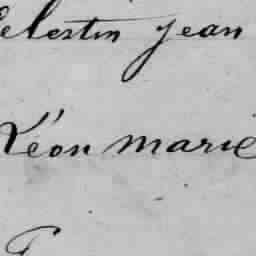 Celestin jean
Léon marie